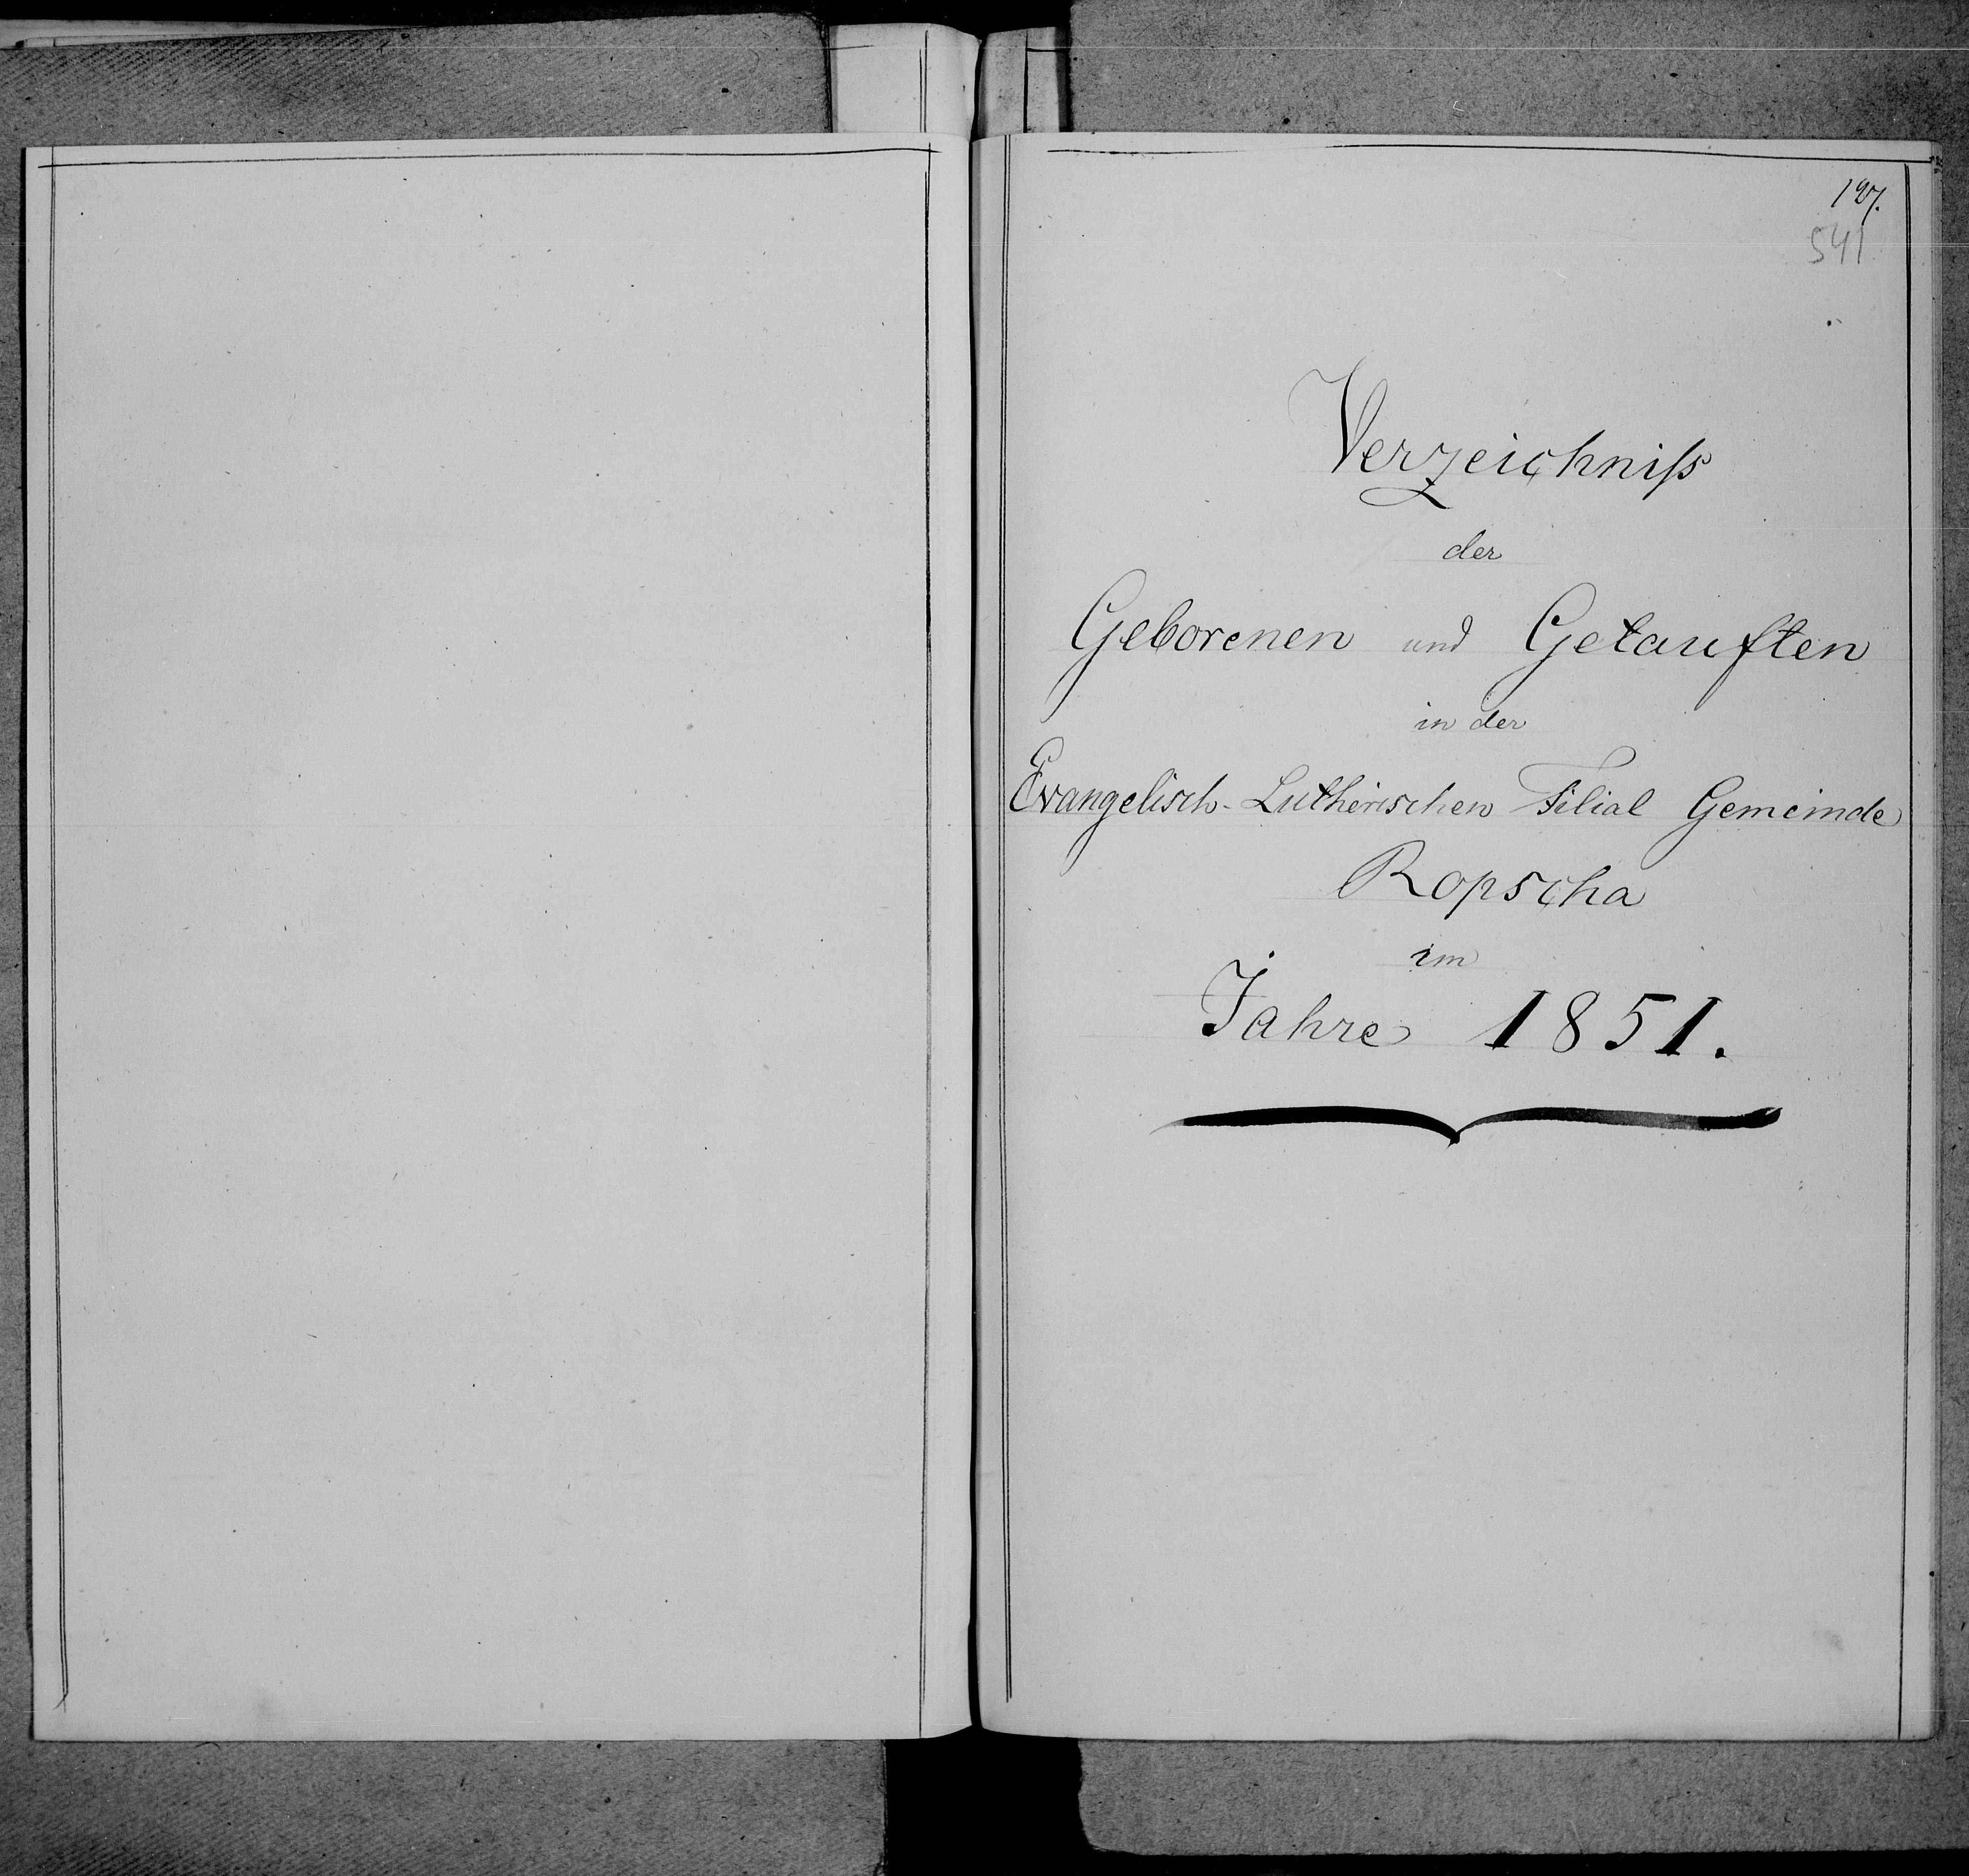 541
Verzeichniſs
der
Geborenen und Getauften
in der
Evangelisch-Lutherischen Filial Gemeinde
Ropscha
im
Jahre 1851.